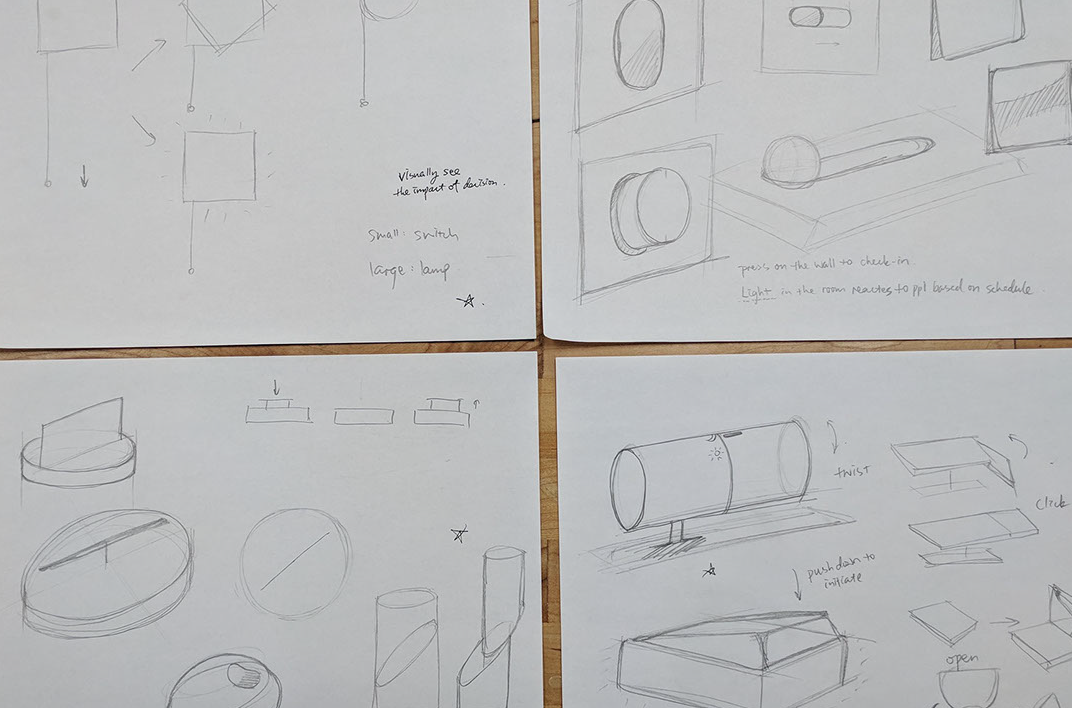 visually see
the impact of decision.
small: switch
large: lamp
press on the wall to check-in
Light in the room reactes to ppl based on schedule
twist
click
push down to
initiate
open